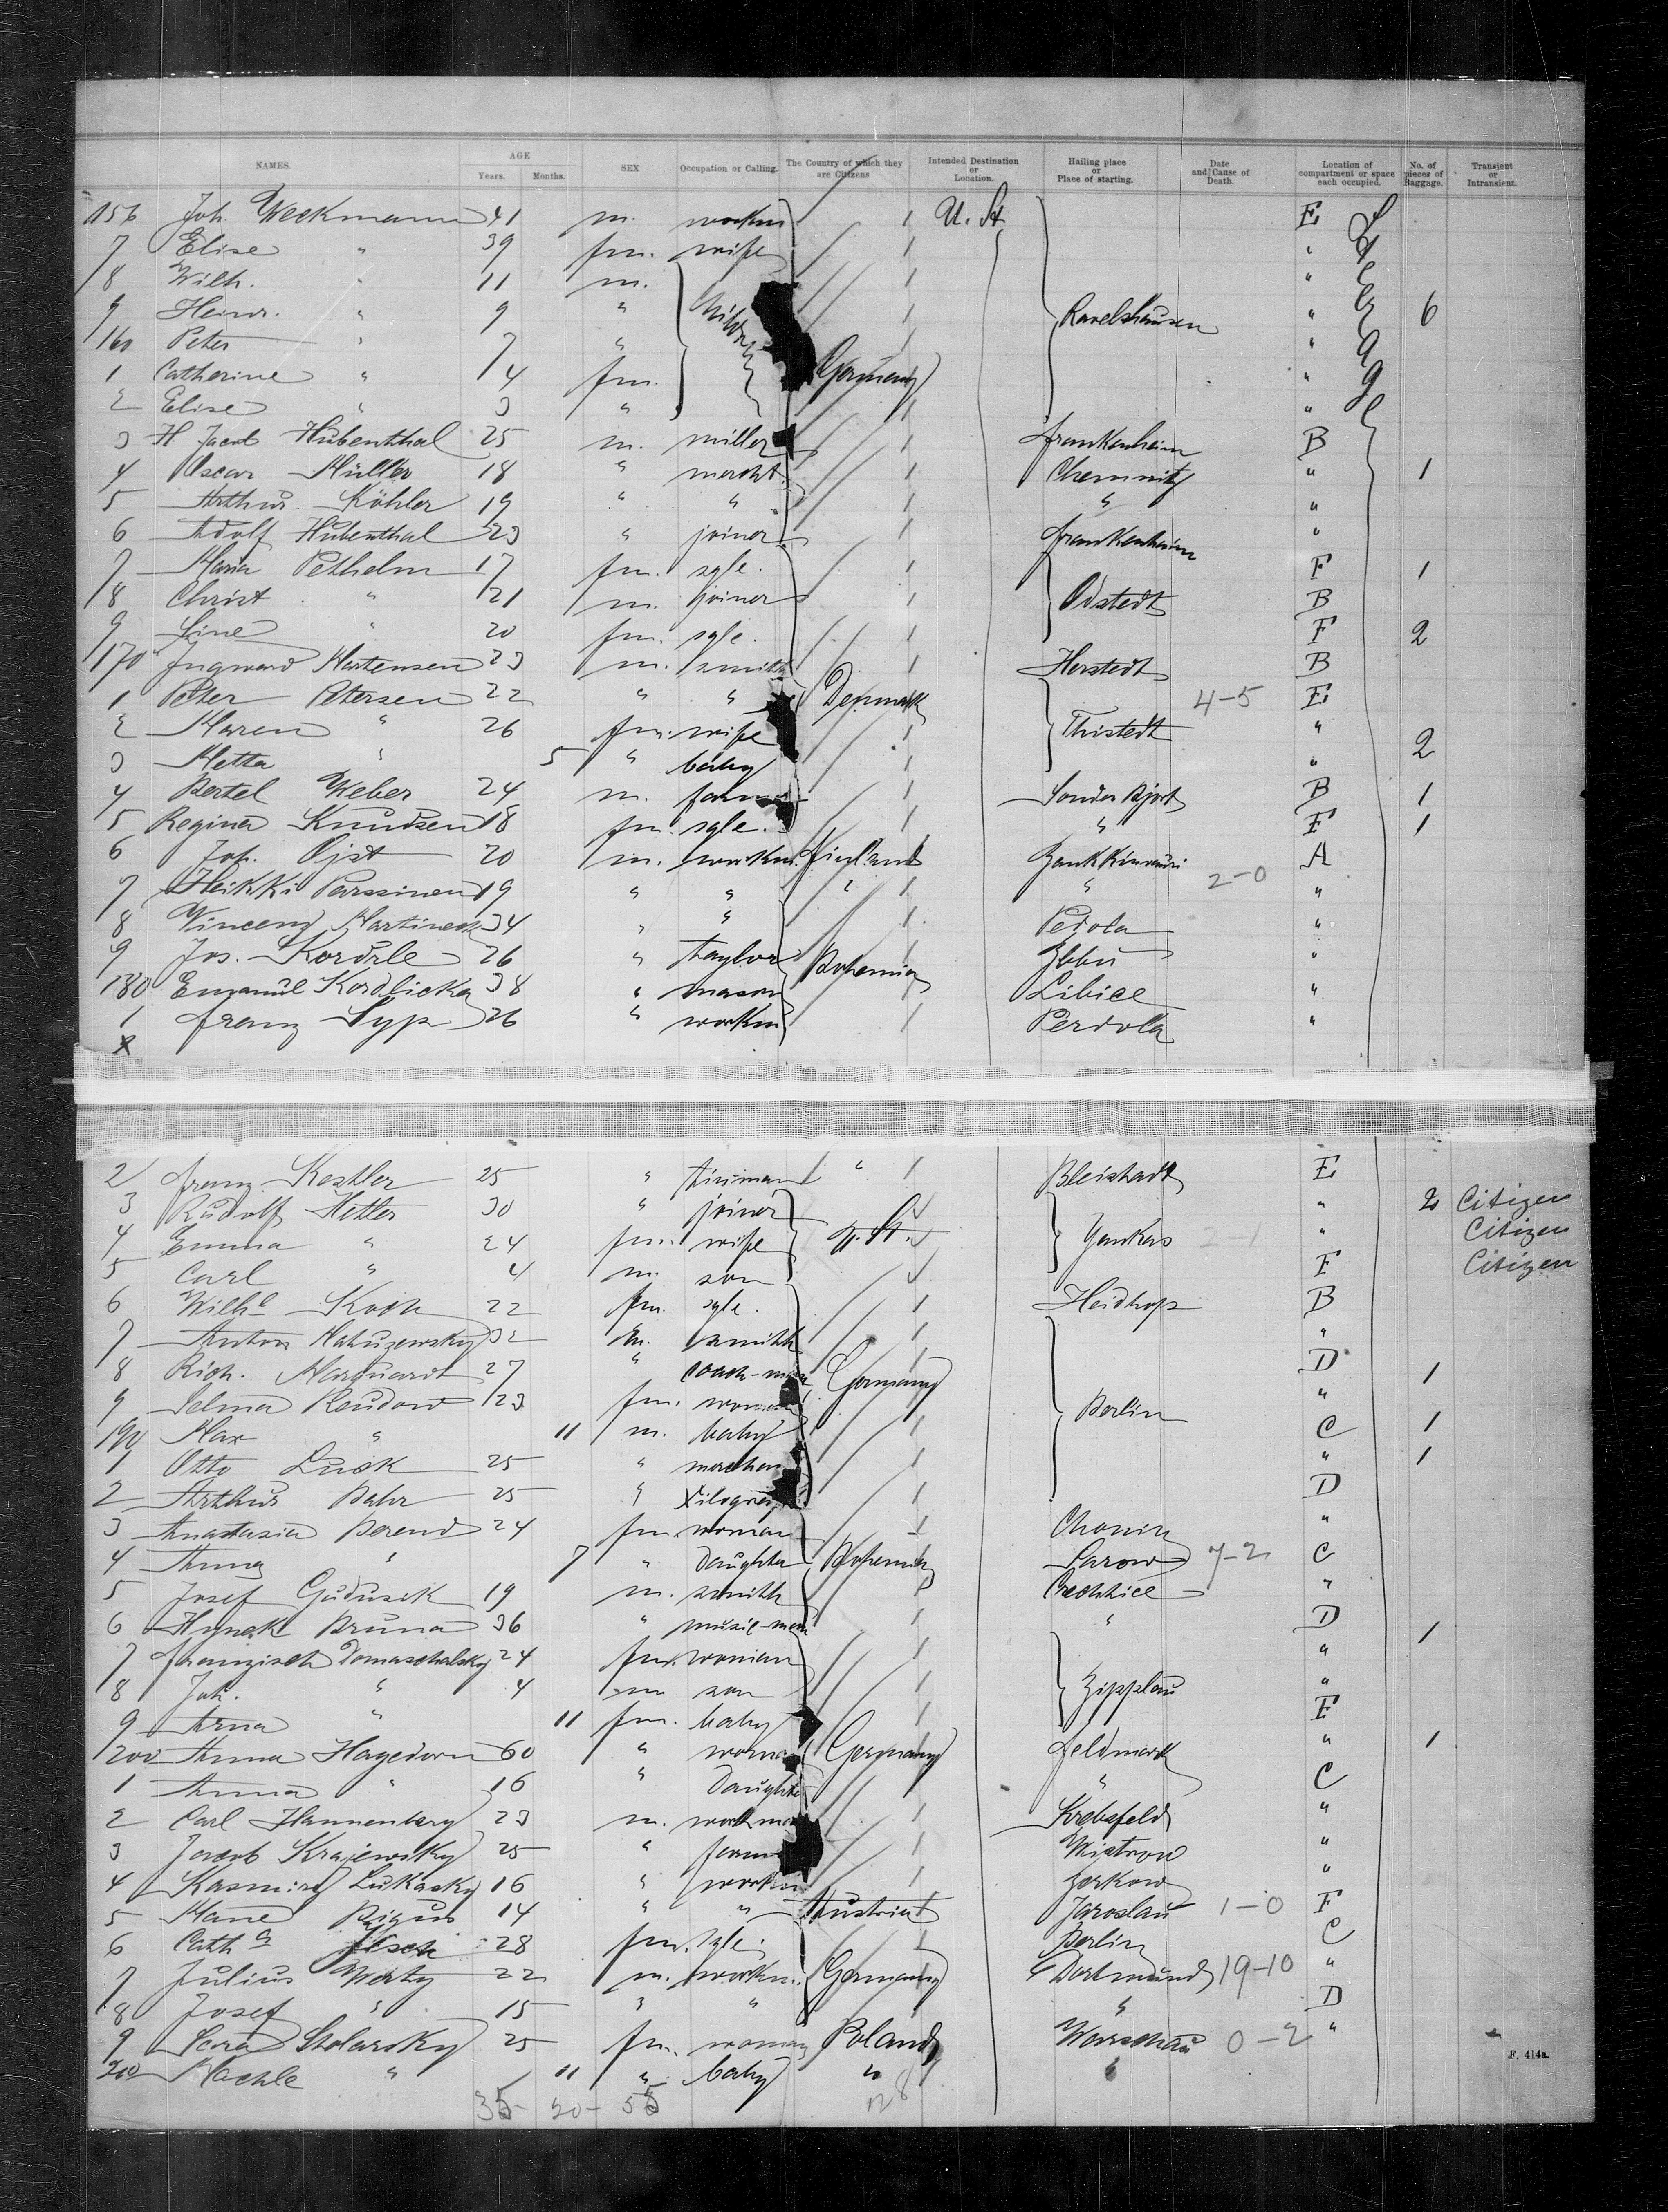 NAMES. AGE Years. Months. SEX Occupation or Calling. The Country of which they are Citizens Intended Destination or Location. Hailing place or Place of starting. Date and Cause of Death. Location of compartment or space each occupied. No. of pieces of Baggage. Transient or Intransient.
156 Joh. Weckmann 41 m. workm U. St. E
7 Elise " 39 fm. wife "
8 Wilh. " 11 m. "
9 Heinr. " 9 " Ravelshausen " 6
160 Peter " 7 " "
1 Catherine " 4 fm. Germany "
2 Elise " 3 " "
3 H Jacob Hubenthal 25 m. miller Frankenheim B
4 Oscar Müller 18 " mercht. Chemnitz " 1
5 Arthur Köhler 19 " " " "
6 Adolf Hubenthal 23 " joiner Frankenheim "
7 Maria Pethelm 17 fm. sgle. F 1
8 Christ " 21 m. joiner Odstedt B
9 Line " 20 fm. sgle. F 2
170 Ingward Martensen 23 m. smith Herstedt B
1 Peter Petersen 22 " " Denmark 4-5 E
2 Maren " 26 fm. wife Thistedt "
3 Metta " 5 " baby " 2
4 Bertel Weber 24 m. farm Sonder Bjert B 1
5 Regina Knudsen 18 fm. sgle. " F 1
6 Joh. Ojst 20 m. workm. Finland A
7 Heikki Parssinen 19 " " " " 2-0 "
8 Vincenz Martinek 34 " " Pedola "
9 Jos. Kordrle 26 " taylor Bohemia "
180 Emanuel Kordlicka 38 " mason Libice "
1 Franz Syp 26 " workm Perdola "
2 Franz Kestler 25 " tinman " Bleistadt E
3 Rudolf Hetler 30 " joiner " 2 Citizen
4 Emma " 24 fm. wife U. St. Yonkas 2-1 " Citizen
5 Carl " 4 m. son F Citizen
6 Wilhe Koch 22 fm. sgle. Heidhop B
7 Anton 32 m. smith "
8 Rich. Marquardt 27 " coach-man Germany D 1
9 Selma Reudow 23 fm. woman Berlin "
190 Max " 11 m. baby C 1
1 Otto Lusk 25 " merchan " 1
2 Arthur Bahr 25 " Xilograp D
3 Anastasia Berend 24 fm. woman Chonin "
4 Anna " 7 " daughter Bohemia Larow 7-2 C
5 Josef Gudusek 19 m. smith Crechtice "
6 Hynek Bruna 36 " music-man " D 1
7 Franzisch Domaschalsky 24 fm. woman "
8 Joh. " 4 m son Zipplau "
9 Anna " 11 fm. baby E
200 Anna Hagedorn 60 " woman Germany Feldmark " 1
1 Anna " 16 " daughter " C
2 Carl Hannenberg 23 m. workman Krebsfeld "
3 Jacob Krajewsky 25 " farm Wistrow "
4 Kasmir Lukasky 16 " workm Zerkow "
5 14 " " Austria Jaroslau 1-0 F
6 Cath 28 fm. sgle. Berlin C
7 Julius Werty 22 m. workm. Germany Dortmund 19-10 "
8 Josef " 15 " " " D
9 Sora Stolarsky 25 fm. woman Poland Warschau 0-2 "
210 Rachle " 11 " baby " "
F. 414a.